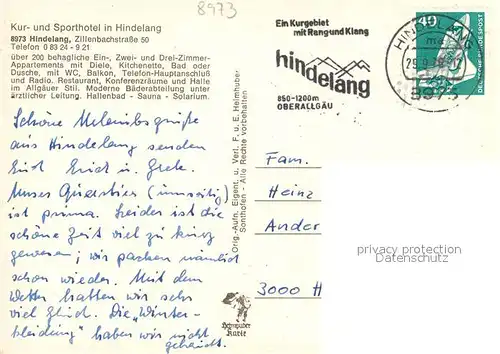 8973
Kur- und Sporthotel in Hindelang
8973 Hindelang, Zillenbachstraße 50
Telefon 0 83 24 - 9 21
über 200 behagliche Ein-, Zwei- und Drei-Zimmer-
Appartements mit Diele, Kitchenette, Bad oder
Dusche, mit WC, Balkon, Telefon-Hauptanschluß
und Radio. Restaurant, Konferenzräume und Halle
im Allgäuer Stil. Moderne Bäderabteilung unter
ärztlicher Leitung. Hallenbad - Sauna - Solarium.
Schöne Urlaubsgrüße
aus Hindelang senden
Euch Erich u. Grete.
Unser Quartier (umseitig)
ist prima. Leider ist die
schöne Zeit viel zu kurz
gewesen; wir packen nämlich
schon wieder. Mit dem
Wetter hatten wir sehr
viel Glück. Die "Winter-
kleidung" haben wir nicht
gebraucht.
Orig.-Aufn. Eigent. u. Verl. F. u. E. Heimhuber
Sonthofen - Alle Rechte vorbehalten
Ein Kurgebiet
mit Rang und Klang
hindelang
850-1200m
OBERALLGÄU
HINDELANG
8973
40
DEUTSCHE BUNDESPOST
Fam.
Heinz
Ander
3000 H
privacy protection
DATENSCHUTZ
Heimhuber
Karte